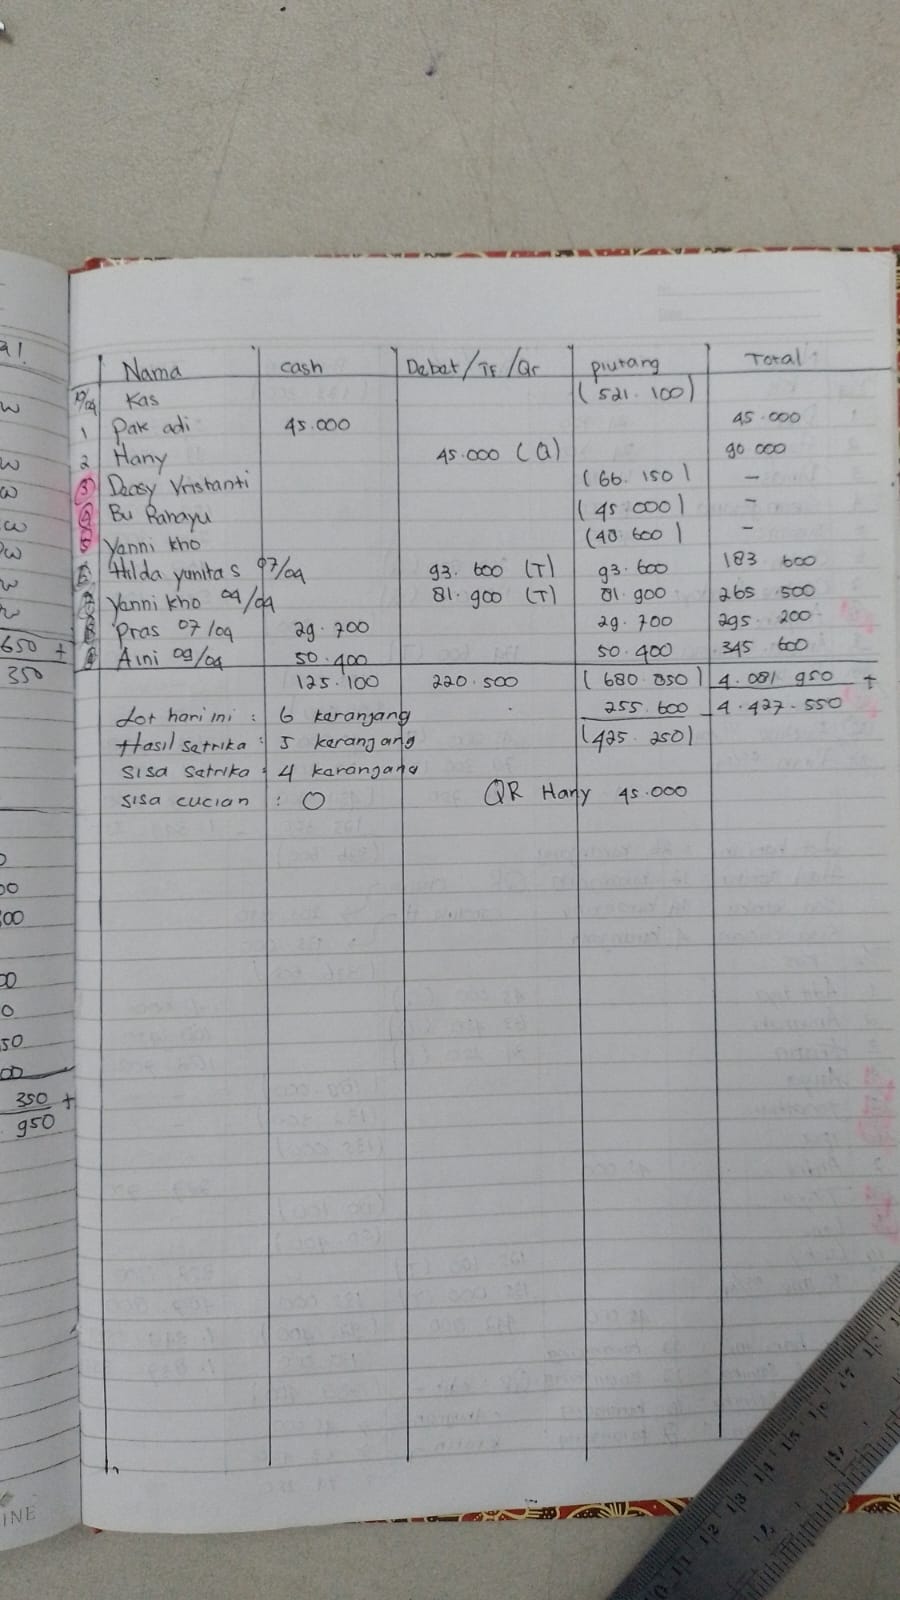 a!
Nama cash Debet/TF/Qr piutang Total
10/09 Kas (521.100)
1 Pak adi 45.000 45.000
2 Hany 45.000 (Q) 90 000
3 Deasy Vristanti (66.150) -
4 Bu Rahayu (45.000) -
5 Yanni kho (48 600) -
6 Hilda yunita s 07/09 93.600 (T) 93.600 183 600
7 Yanni kho 09/09 81.900 (T) 81.900 265.500
8 Pras 07/09 29.700 29.700 295.200
9 Aini 09/09 50.400 50.400 345.600
125.100 220.500 (680 850) 4.081 950 +
Lot hari ini : 6 keranjang 255.600 4.427.550
Hasil setrika : 5 keranjang (425.250)
Sisa Setrika : 4 keranjang
Sisa cucian : 0 QR Hany 45.000
650 +
350
350 +
950
INE